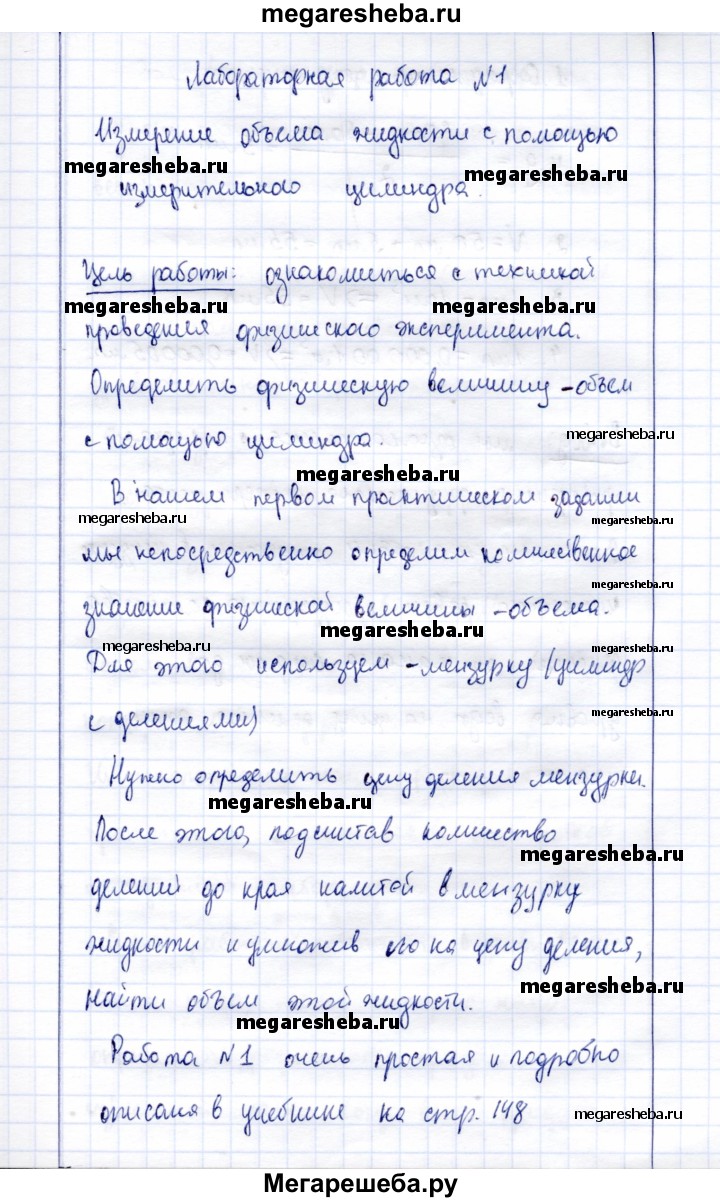 megaresheba.ru
Лабораторная работа №1
Измерение объема жидкости с помощью
megaresheba.ru
megaresheba.ru
измерительного цилиндра.
Цель работы: ознакомиться с техникой
megaresheba.ru
megaresheba.ru
проведения физического эксперимента.
Определить физическую величину - объем
с помощью цилиндра.
megaresheba.ru
megaresheba.ru
В нашем первом практическом задании
megaresheba.ru
megaresheba.ru
мы непосредственно определим количественное
megaresheba.ru
значение физической величины - объема.
megaresheba.ru
megaresheba.ru
megaresheba.ru
Для этого используем - мензурку (цилиндр
с делениями)
megaresheba.ru
Нужно определить цену деления мензурки.
megaresheba.ru
После этого, подсчитав количество
megaresheba.ru
делений до края налитой в мензурку
жидкости и умножив его на цену деления,
megaresheba.ru
найти объем этой жидкости.
megaresheba.ru
Работа №1 очень простая и подробно
описана в учебнике на стр. 148
megaresheba.ru
Мегарешеба.ру